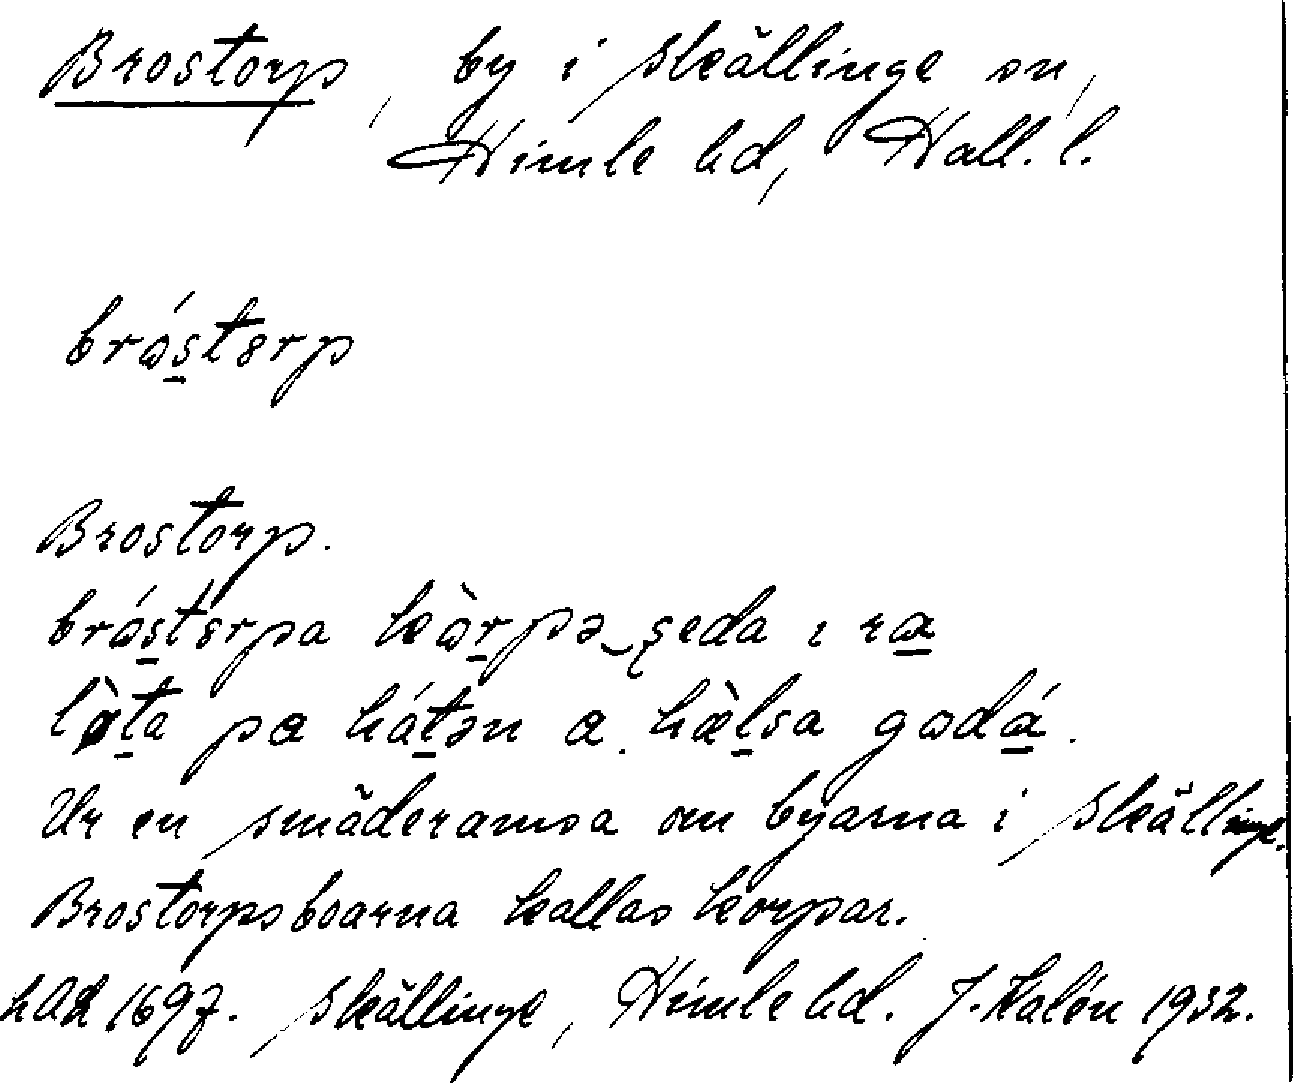 Brostorp, by i Skällinge sn,
Himle hd, Hall. l.
brós̱tɞrp
Brostorp.
brós̱tɞrpa kɷ̀ṟpə
pa há
Ur en smäderamsa om byarna i Skällinge.
Brostorpsboarna kallas korpar.
1697. Skällinge, Himle hd. J. Kalén 1932.